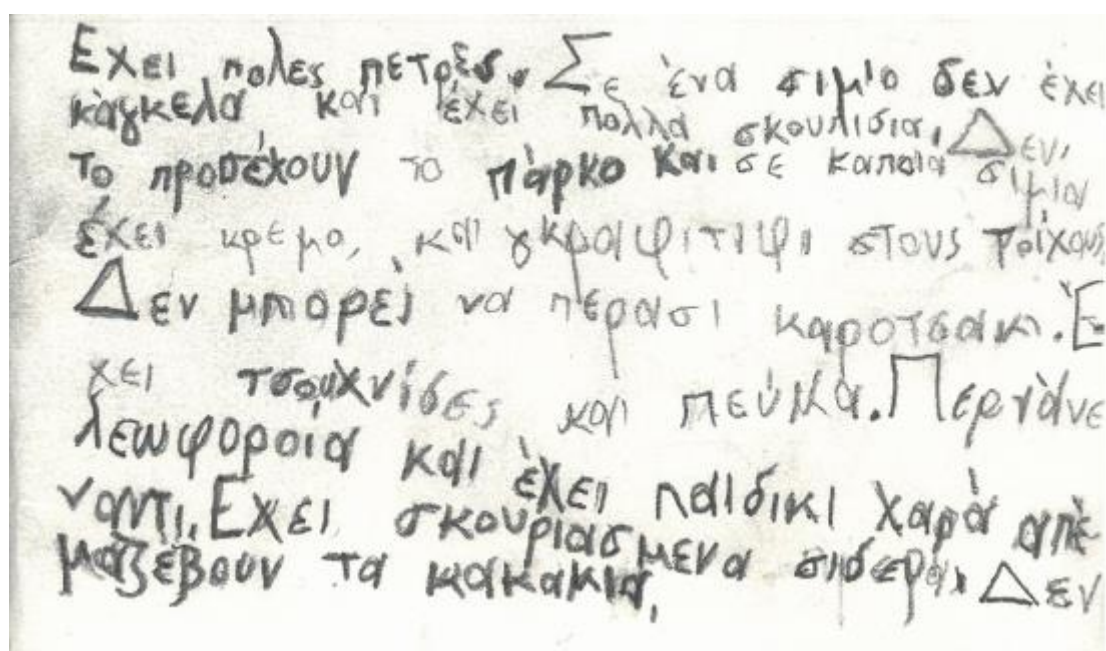 Εχει πολες πετρες. Σε ένα σιμίο δεν έχει
κάγκελα και έχει πολλά σκουπισια, Δεν,
το προσέχουν το πάρκο και σε καποιά σιμια
έχει κρεμο, και γκραφιτιφι στους τοίχους,
Δεν μπορεί να περασι καροτσακι. Έ
χει τσουχνίδες και πεύκα. Περνάνε
λεωφοροια και έχει παιδικι χαρά απέ
ναντι. Εχει σκουριασμενα σιδερα, Δεν
μαζεβουν τα κακακια,